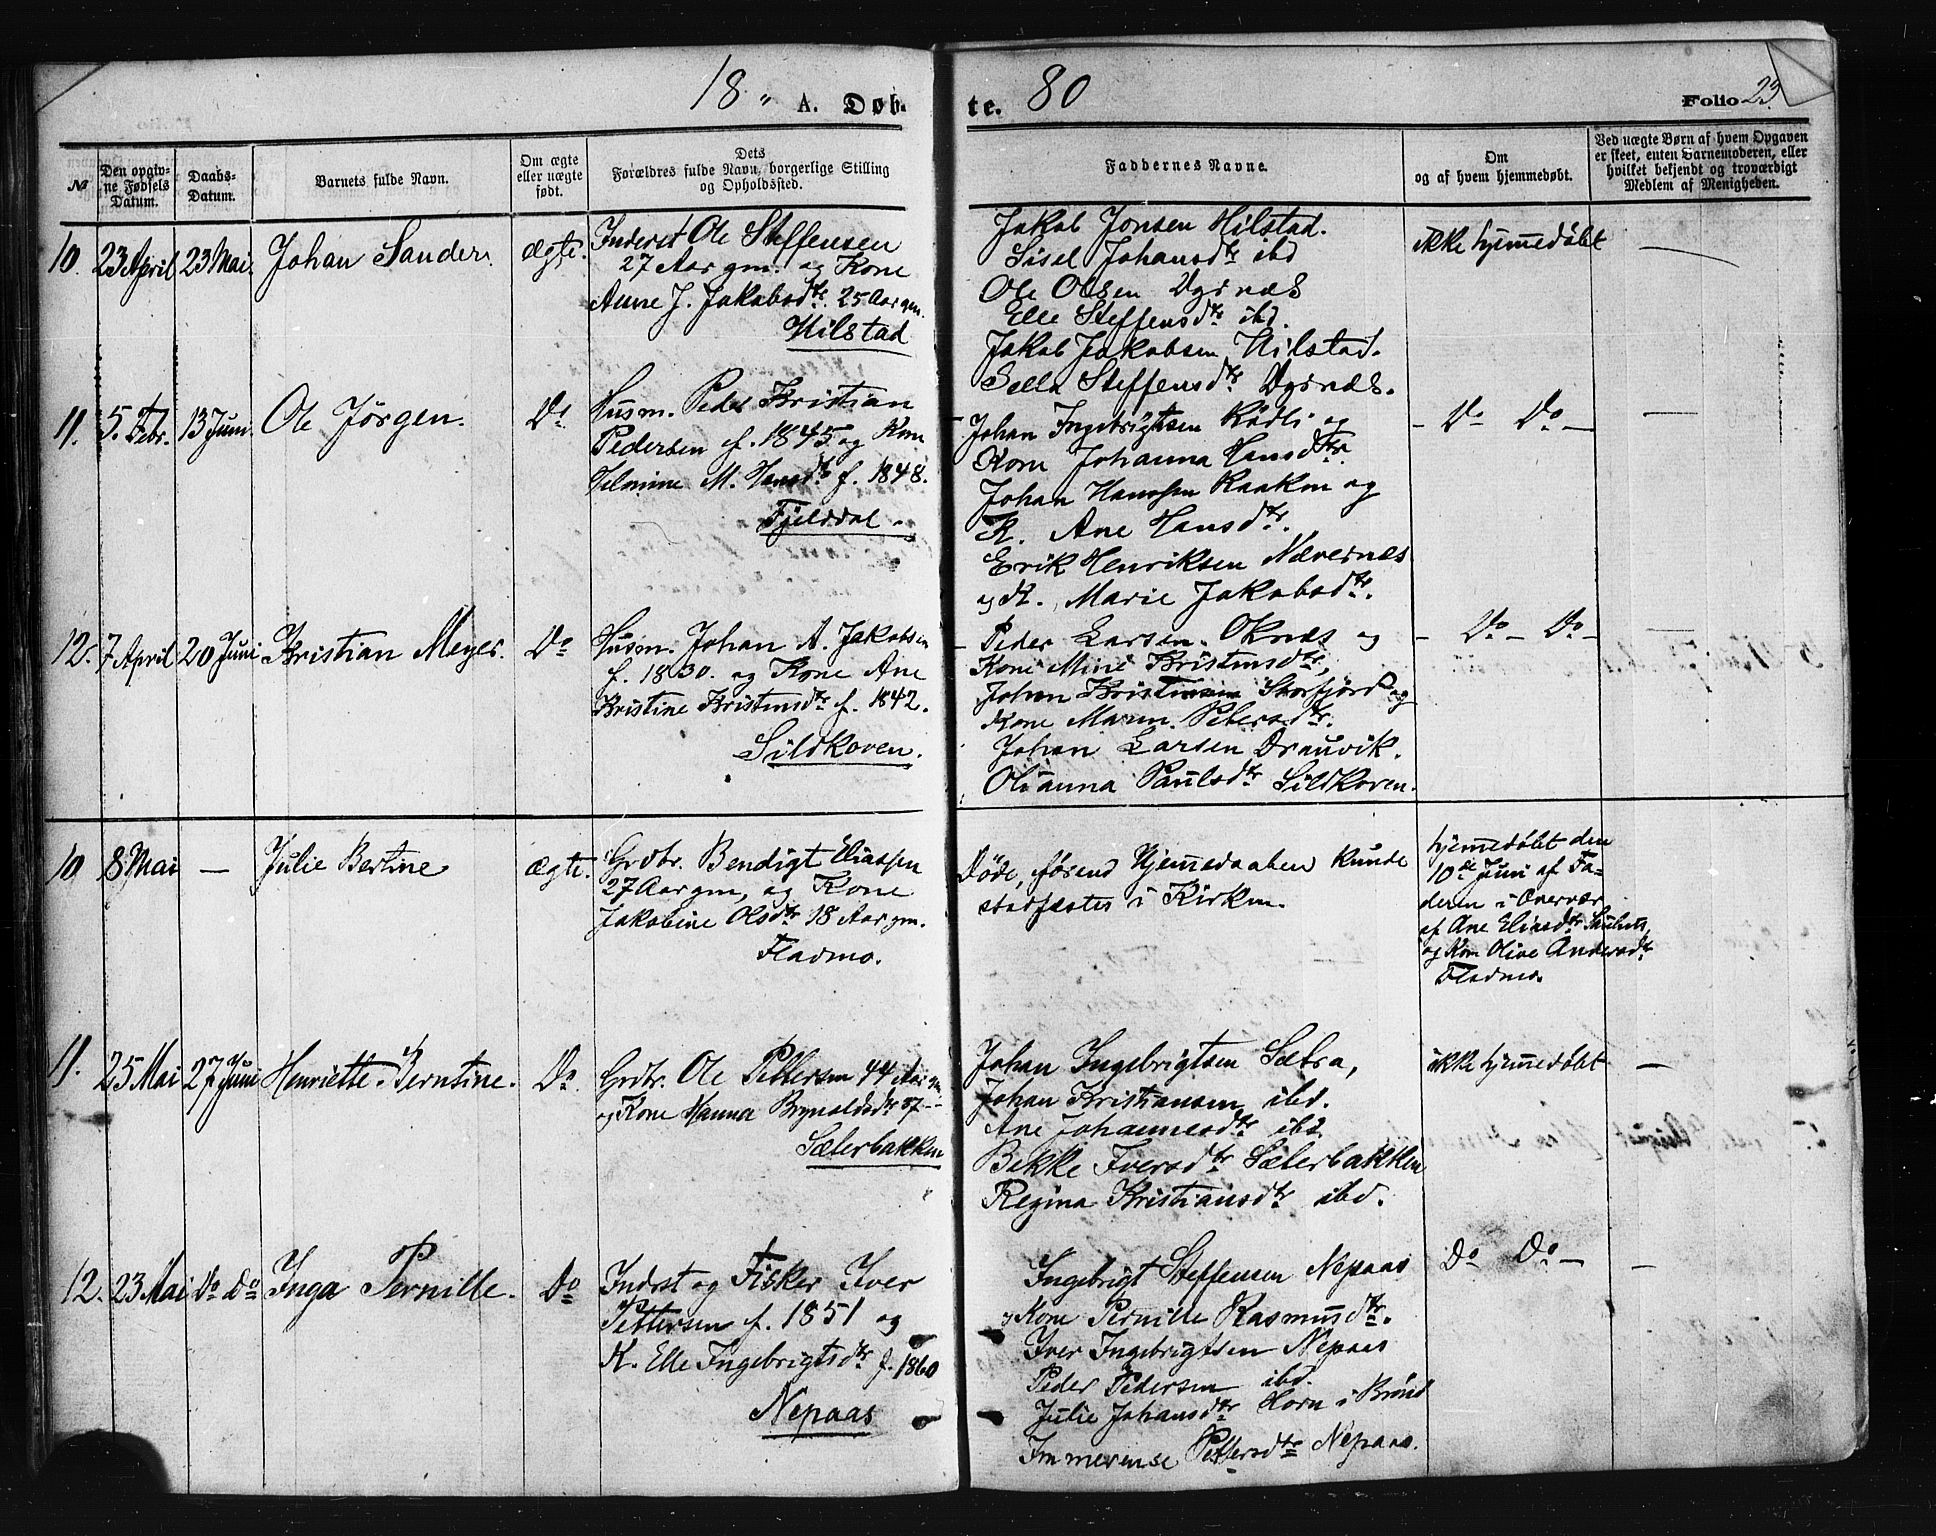 18 " A. Døb- te. 80 Folio 23.
№
Den opgiv-
ne Fødsels
Datum.
Daabs-
Datum.
Barnets fulde Navn.
Om ægte
eller uægte
født.
Dets
Forældres fulde Navn, borgerlige Stilling
og Opholdssted.
Faddernes Navne.
Om
og af hvem hjemmedøbt.
Ved uægte Børn af hvem Opgaven
er skeet, enten Barnemoderen, eller
hvilket bekjendt og troværdigt
Medlem af Menigheden.
10. 23 April 23 Mai. Johan Sander. ægte.
Inderst Ole Steffensen
27 Aar gm. og Kone
Anne J. Jakobsdtr. 25 Aar gm.
Hilstad
Jakob Jonsen Hilstad.
Sisel Johansdtr ibd
Ole Olsen Dyrnæs
Elle Steffensdtr ibd.
Jakob Jakobsen Hilstad.
Sella Steffensdtr. Dyrnæs.
ikke hjemmedøbt —
11. 5. Febr. 13 Juni Ole Jørgen. Do
Husm. Peder Kristian
Pedersen f. 1845 og Kone
M. Hansdtr f. 1848.
Fjelddal.
Johan Ingebrigtsen Rødli og
Kone Johanna Hansdtr.
Johan Hanssen og
K. Ane Hansdtr.
Erik Henriksen Nævernæs
og K. Marie Jakobsdtr.
- Do Do - —
12. 7 April 20 Juni Kristian Meyer. Do
Husm. Johan A. Jakobsen
f. 1830. og Kone Ane
Kristine Kristensdtr f. 1842.
Sildkoven.
Peder Larsen. Oknæs og
Kone Mine Kristensdtr,
Johan Kristensen Storfjord og
Kone Maren Petersdtr.
Johan Larsen Drauvik.
Olianna Paulsdtr Sildkoven.
- Do - Do - —
10 8 Mai — Julie Bertine ægte.
Grdbr. Bendigt Eliassen
27 Aar gm, og Kone
Jakobine Olsdtr 18 Aar gm.
Fladmo.
Døde, førend Hjemmedaaben kunde
stadfæstes i Kirken.
hjemmedøbt den
10de Juni af Fa-
deren i Overvær
af Ane Eliasdtr
og Kone Olive Andersdtr
Fladmo.
11. 25 Mai 27 Juni Henriette Berntine. Do.
Grdbr. Ole Pettersen 44 Aar gm
og Kone Hanna Brynaldsdtr 37 - -
Sæterbakken
Johan Ingebrigtsen Sætra,
Johan Kristiansen, ibd.
Ane Johannesdtr ibd
Bekke Iversdtr Sæterbakken
Regina Kristiansdtr ibd.
ikke hjemmedøbt —
12. 23 Mai Do Do Inga Pernille. Do
Inderst og Fisker Iver
Pettersen f. 1851 og
K. Elle Ingebrigtsdtr f. 1860
Nepaas
Ingebrigt Steffensen Nepaas
og Kone Pernille Rasmusdtr.
Iver Ingebrigtsen Nepaas
Peder Pedersen ibd.
Julie Johansdtr Horn i Brønø
Immerense Pettersdtr Nepaas.
Do Do - —